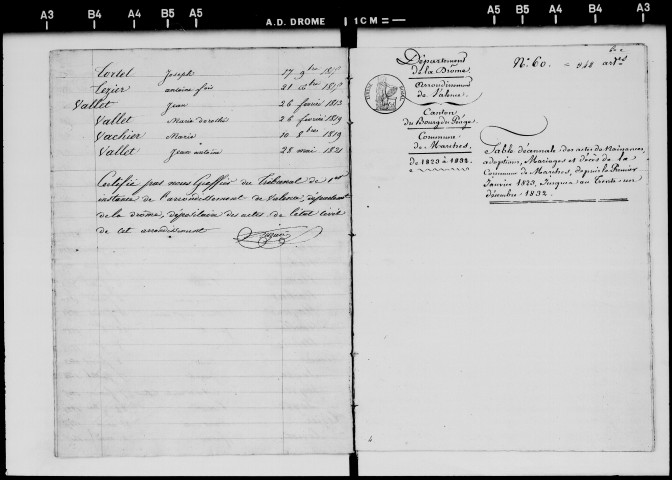 A3 B4 A4 B5 A5 A.D. DROME 1CM= A5 B5 A4 B4 A3
Joseph 17 9bre
21
Vallet Jean 26 fevrier 1813
Vallet Marie dorothé 26 fevrier 1819
Vachier Marie 10 8bre 1819
Vallet Jean antoine 28 mai 1821
Certifié par nous Greffier du Tribunal de 1ere
instance de l'arrondissement de Valence, département
de la drome, dépositaire des actes de l'état civil
de cet arrondissement
Département
de la Drôme.
Arrondissement
de Valence.
Canton
du Bourg du Péage.
Commune
de Marches.
de 1823 à 1832.
N° 60.
Table décennale des actes de Naissances,
adoptions, Mariages et décès de la
Commune de Marches, depuis le Premier
Janvier 1823, Jusques au Trente-un
décembre 1832.